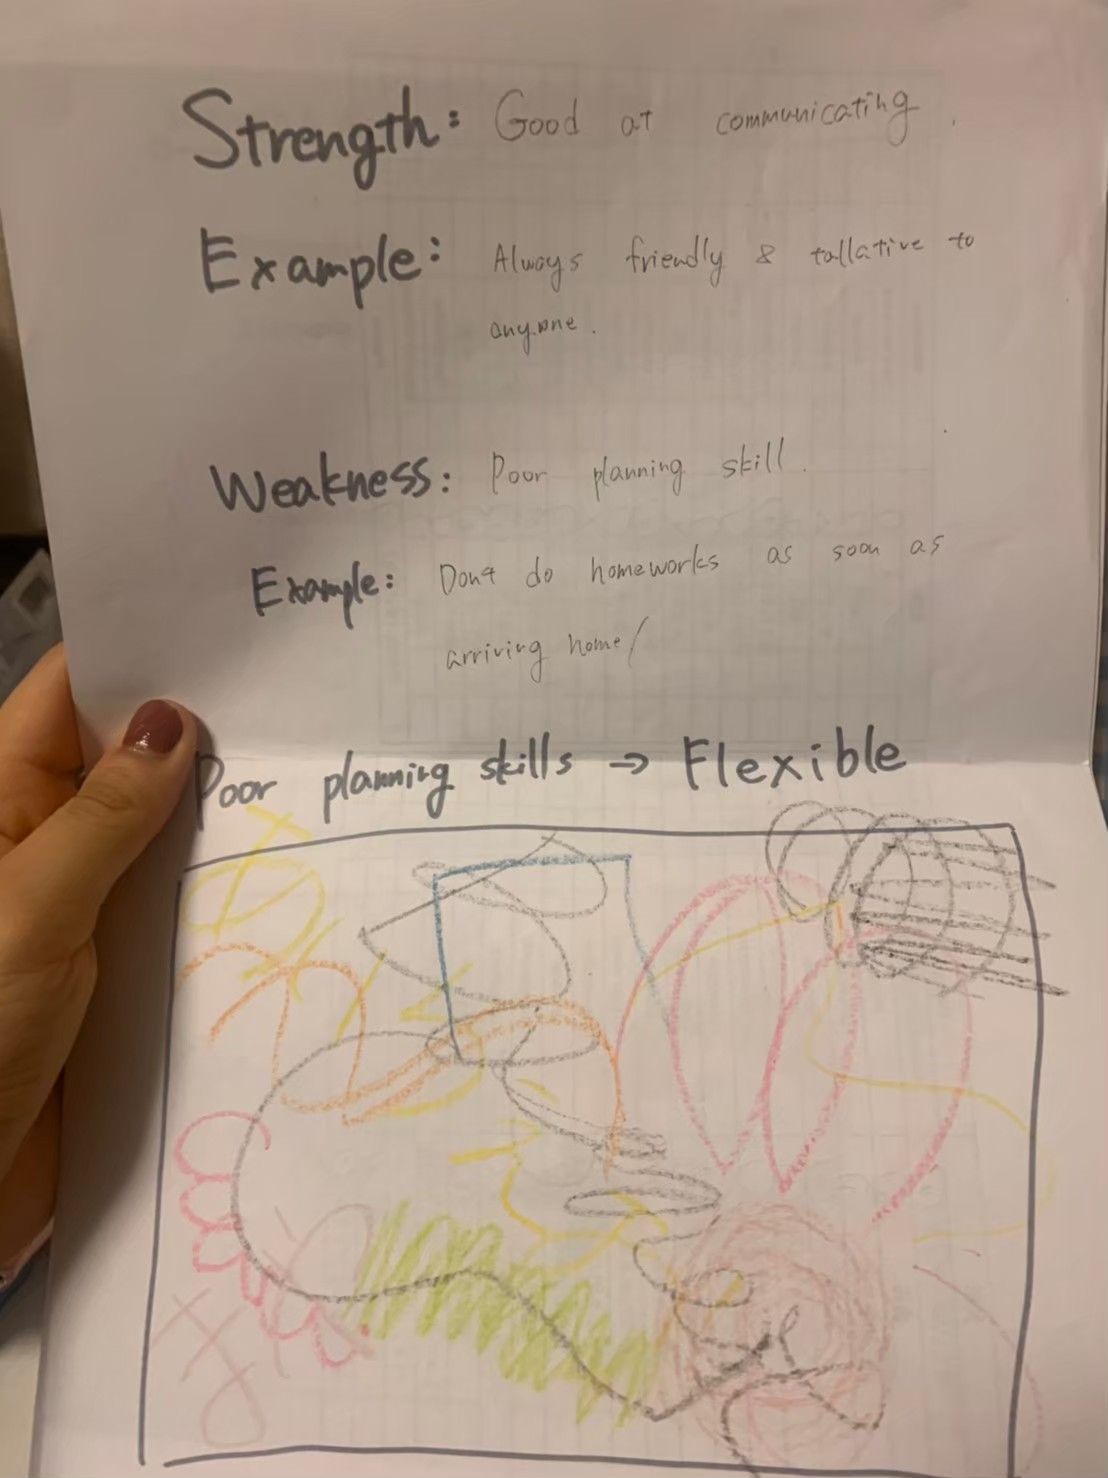 Strength: Good at communicating.
Example: Always friendly & tallative to
anyone.
Weakness: Poor planning skill.
Example: Don't do homeworks as soon as
arriving home/
Poor planning skills → Flexible